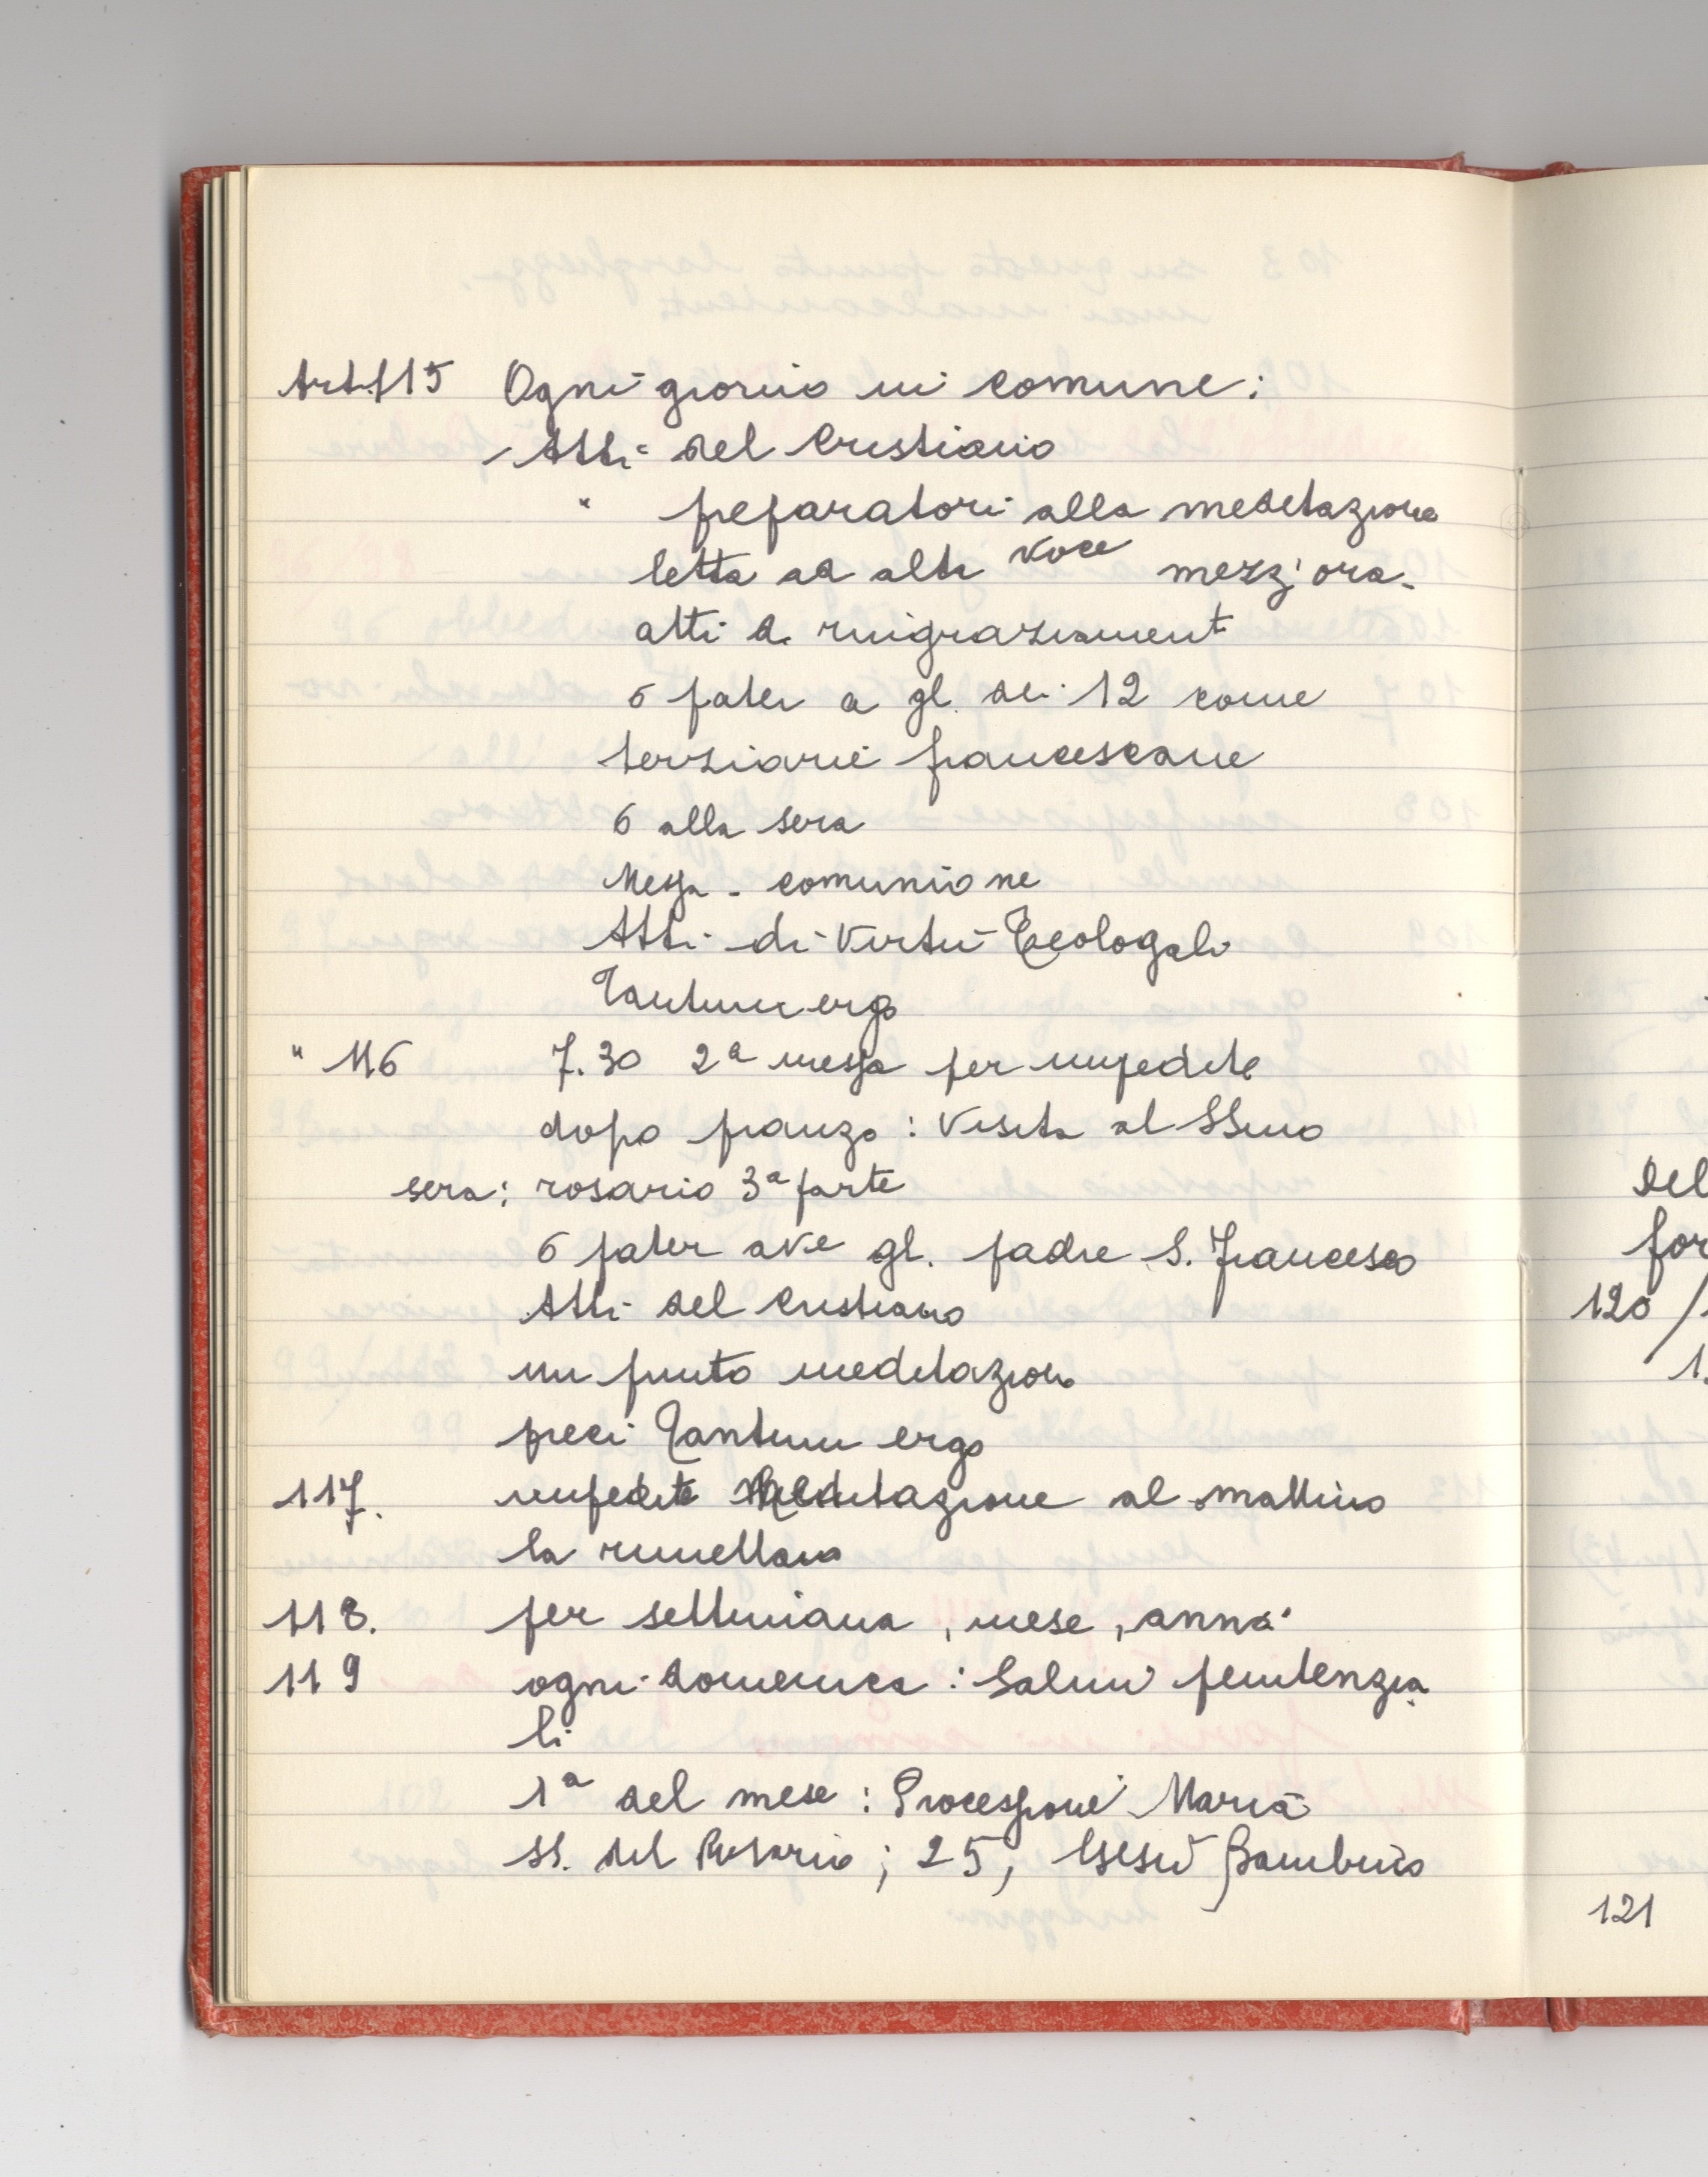 Art. 115 Ogni giorno in comune:
- Atti del Cristiano
" preparatori alla meditazione
letta ad alta voce mezz'ora.
atti di ringraziament
6 pater a gl. dei 12 come
terziarie francescane
6 alla sera
Messa - comunione
Atti di Virtù Teologali
Tantum ergo
" 116 7.30 2ª messa per impedite
dopo pranzo: Visita al SSmo
sera: rosario 3ª parte
6 pater ave gl. padre S. Francesco
Atti del Cristiano
un punto meditazione
preci Tantum ergo
117. impedite Meditazione al mattino
la rimettano
118. per settimana, mese, anno
119 ogni domenica: Salmi penitenzia
li
1ª del mese: Processione Maria
SS. del Rosario; 25, Gesù Bambino
Del
for
120 /
1.
121